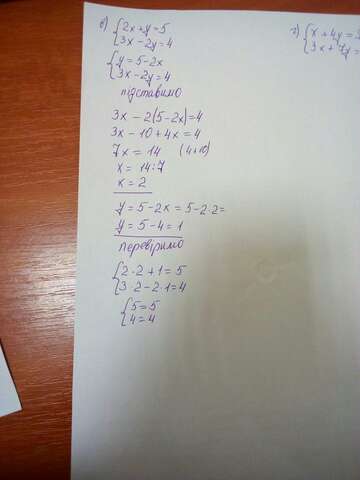 в) {2x+y=5
{3x-2y=4
{y=5-2x
{3x-2y=4
підставимо
3x-2(5-2x)=4
3x-10+4x=4
7x=14 (4+10)
x=14:7
x=2
y=5-2x=5-2·2=
y=5-4=1
перевіримо
{2·2+1=5
{3·2-2·1=4
{5=5
{4=4
{x+4y=
{3x+7y=